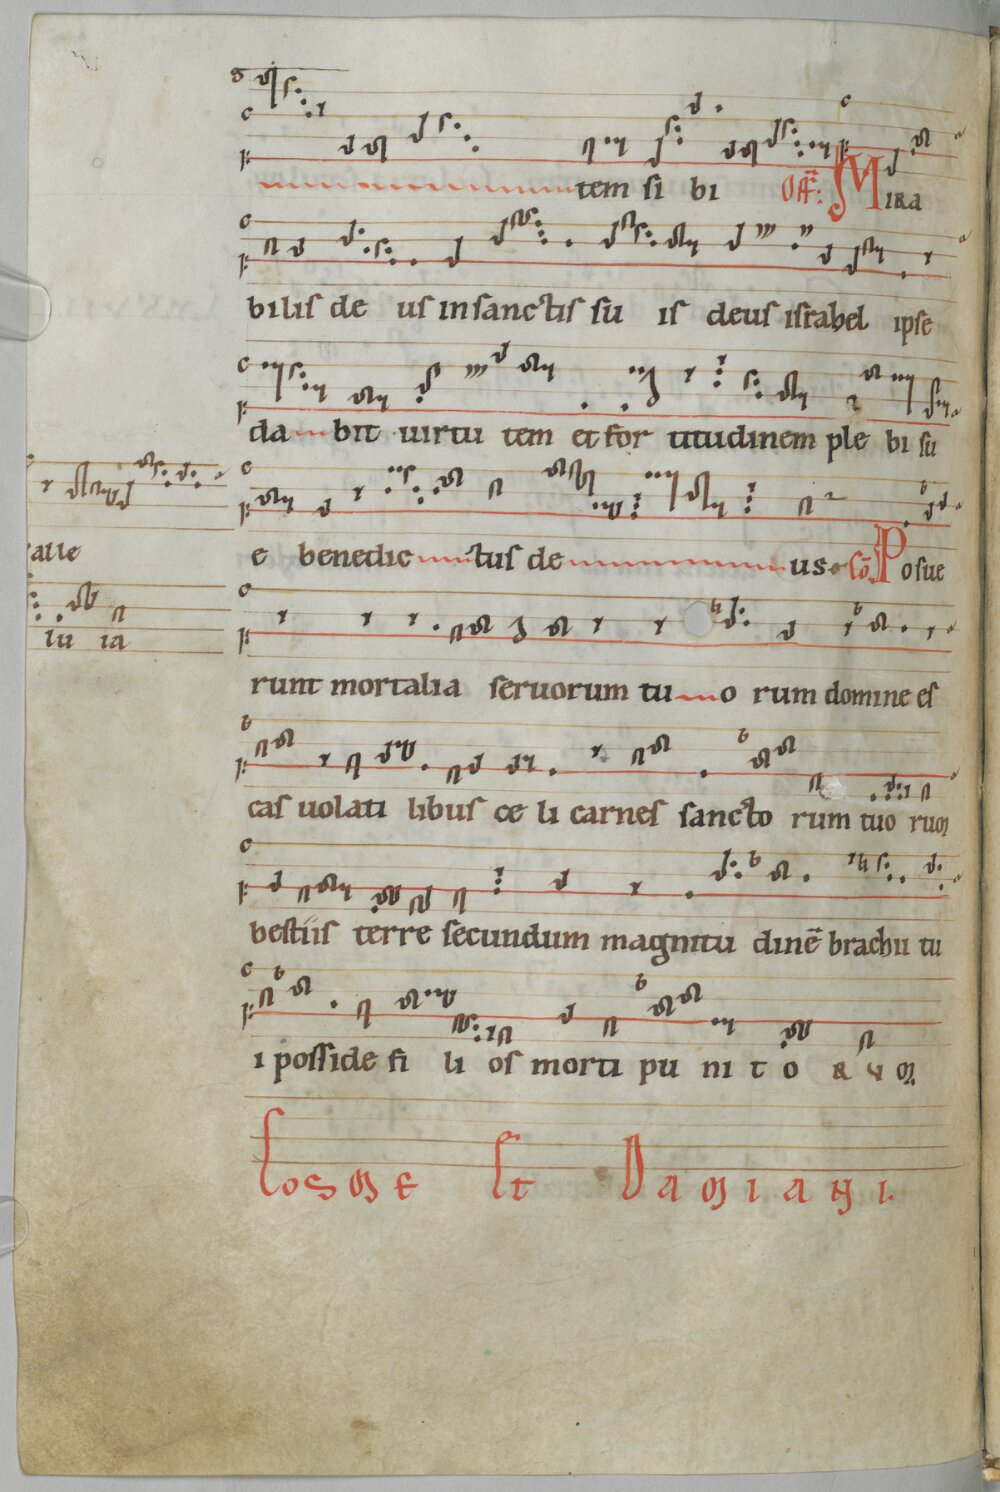 tem si bi Off̄: Mira
bilis de us in sanctis su is deus israhel ipse
da bit uirtu tem et for titudinem ple bi su
e benedic tus de us. Cō. Posue
alle
lu ia
runt mortalia seruorum tu o rum domine es
cas uolati libus ce li carnes sancto rum tuo rum
bestiis terre secundum magnitu dinē brachii tu
i posside fi li os morti pu ni t o R V M
Cosme Et Damiani.